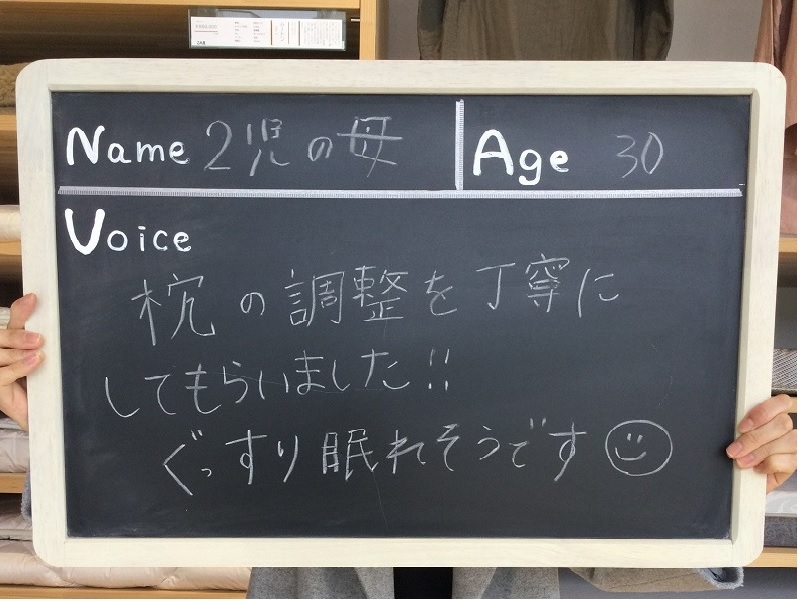 Name 2児の母
Age 30
Voice
枕の調整を丁寧に
してもらいました!!
ぐっすり眠れそうです